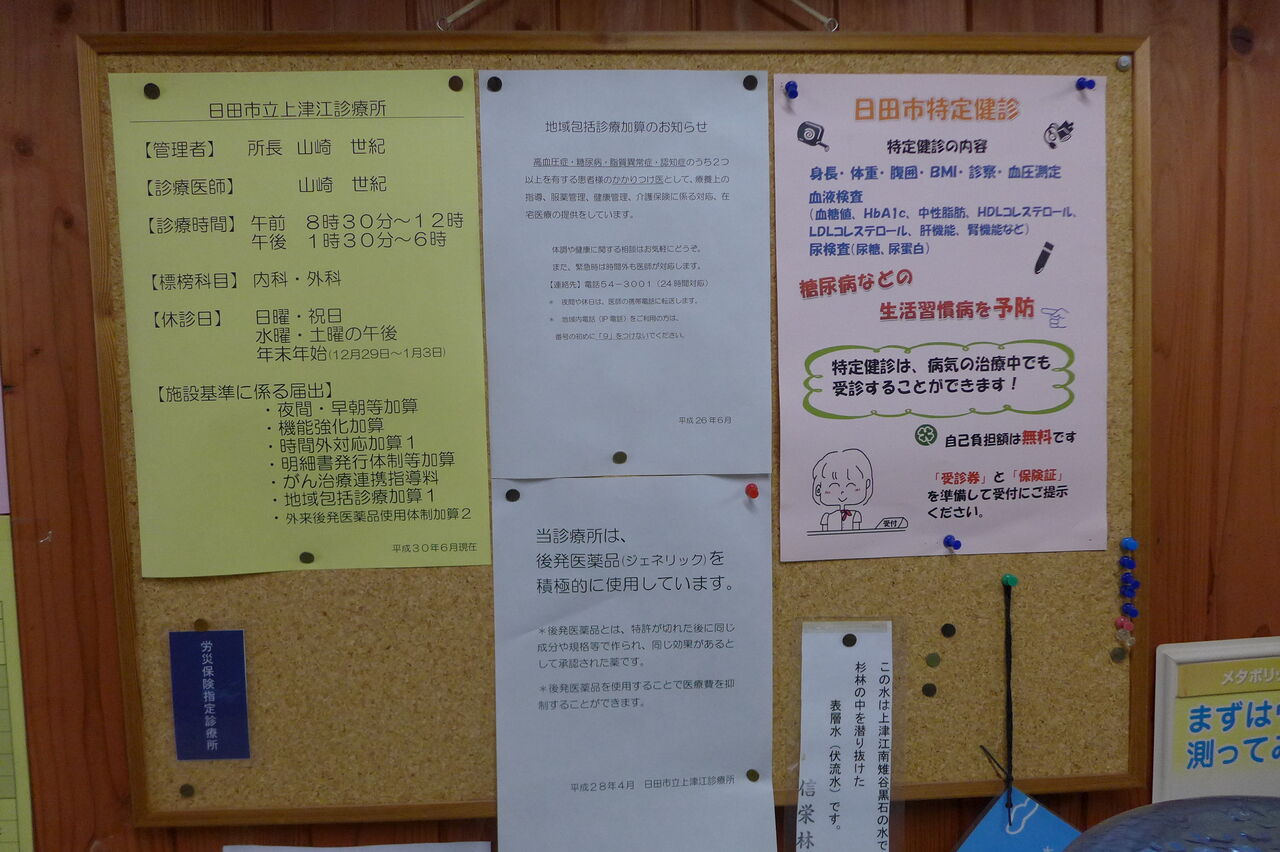 日田市立上津江診療所
【管理者】 所長 山崎 世紀
【診療医師】 山崎 世紀
【診療時間】 午前 8時30分～12時
午後 1時30分～6時
【標榜科目】 内科・外科
【休診日】 日曜・祝日
水曜・土曜の午後
年末年始(12月29日～1月3日)
【施設基準に係る届出】
・夜間・早朝等加算
・機能強化加算
・時間外対応加算1
・明細書発行体制等加算
・がん治療連携指導料
・地域包括診療加算1
・外来後発医薬品使用体制加算2
平成30年6月現在
地域包括診療加算のお知らせ
高血圧症・糖尿病・脂質異常症・認知症のうち2つ
以上を有する患者様のかかりつけ医として、療養上の
指導、服薬管理、健康管理、介護保険に係る対応、在
宅医療の提供をしています。
体調や健康に関する相談はお気軽にどうぞ。
また、緊急時は時間外も医師が対応します。
【連絡先】電話54-3001（24時間対応）
＊ 夜間や休日は、医師の携帯電話に転送します。
＊ 地域内電話（IP電話）をご利用の方は、
番号の初めに「9」をつけないでください。
平成26年6月
当診療所は、
後発医薬品(ジェネリック)を
積極的に使用しています。
＊後発医薬品とは、特許が切れた後に同じ
成分や規格等で作られ、同じ効果があると
して承認された薬です。
＊後発医薬品を使用することで医療費を抑
制することができます。
平成28年4月 日田市立上津江診療所
日田市特定健診
特定健診の内容
身長・体重・腹囲・BMI・診察・血圧測定
血液検査
（血糖値、HbA1c、中性脂肪、HDLコレステロール、
LDLコレステロール、肝機能、腎機能など）
尿検査(尿糖、尿蛋白)
糖尿病などの
生活習慣病を予防
特定健診は、病気の治療中でも
受診することができます！
自己負担額は無料です
「受診券」と「保険証」
を準備して受付にご提示
ください。
受付
労災保険指定診療所
この水は上津江南雉谷黒石の水で
杉林の中を潜り抜けた
表層水（伏流水）です。
信栄林
メタボリッ
まずは
測ってみ